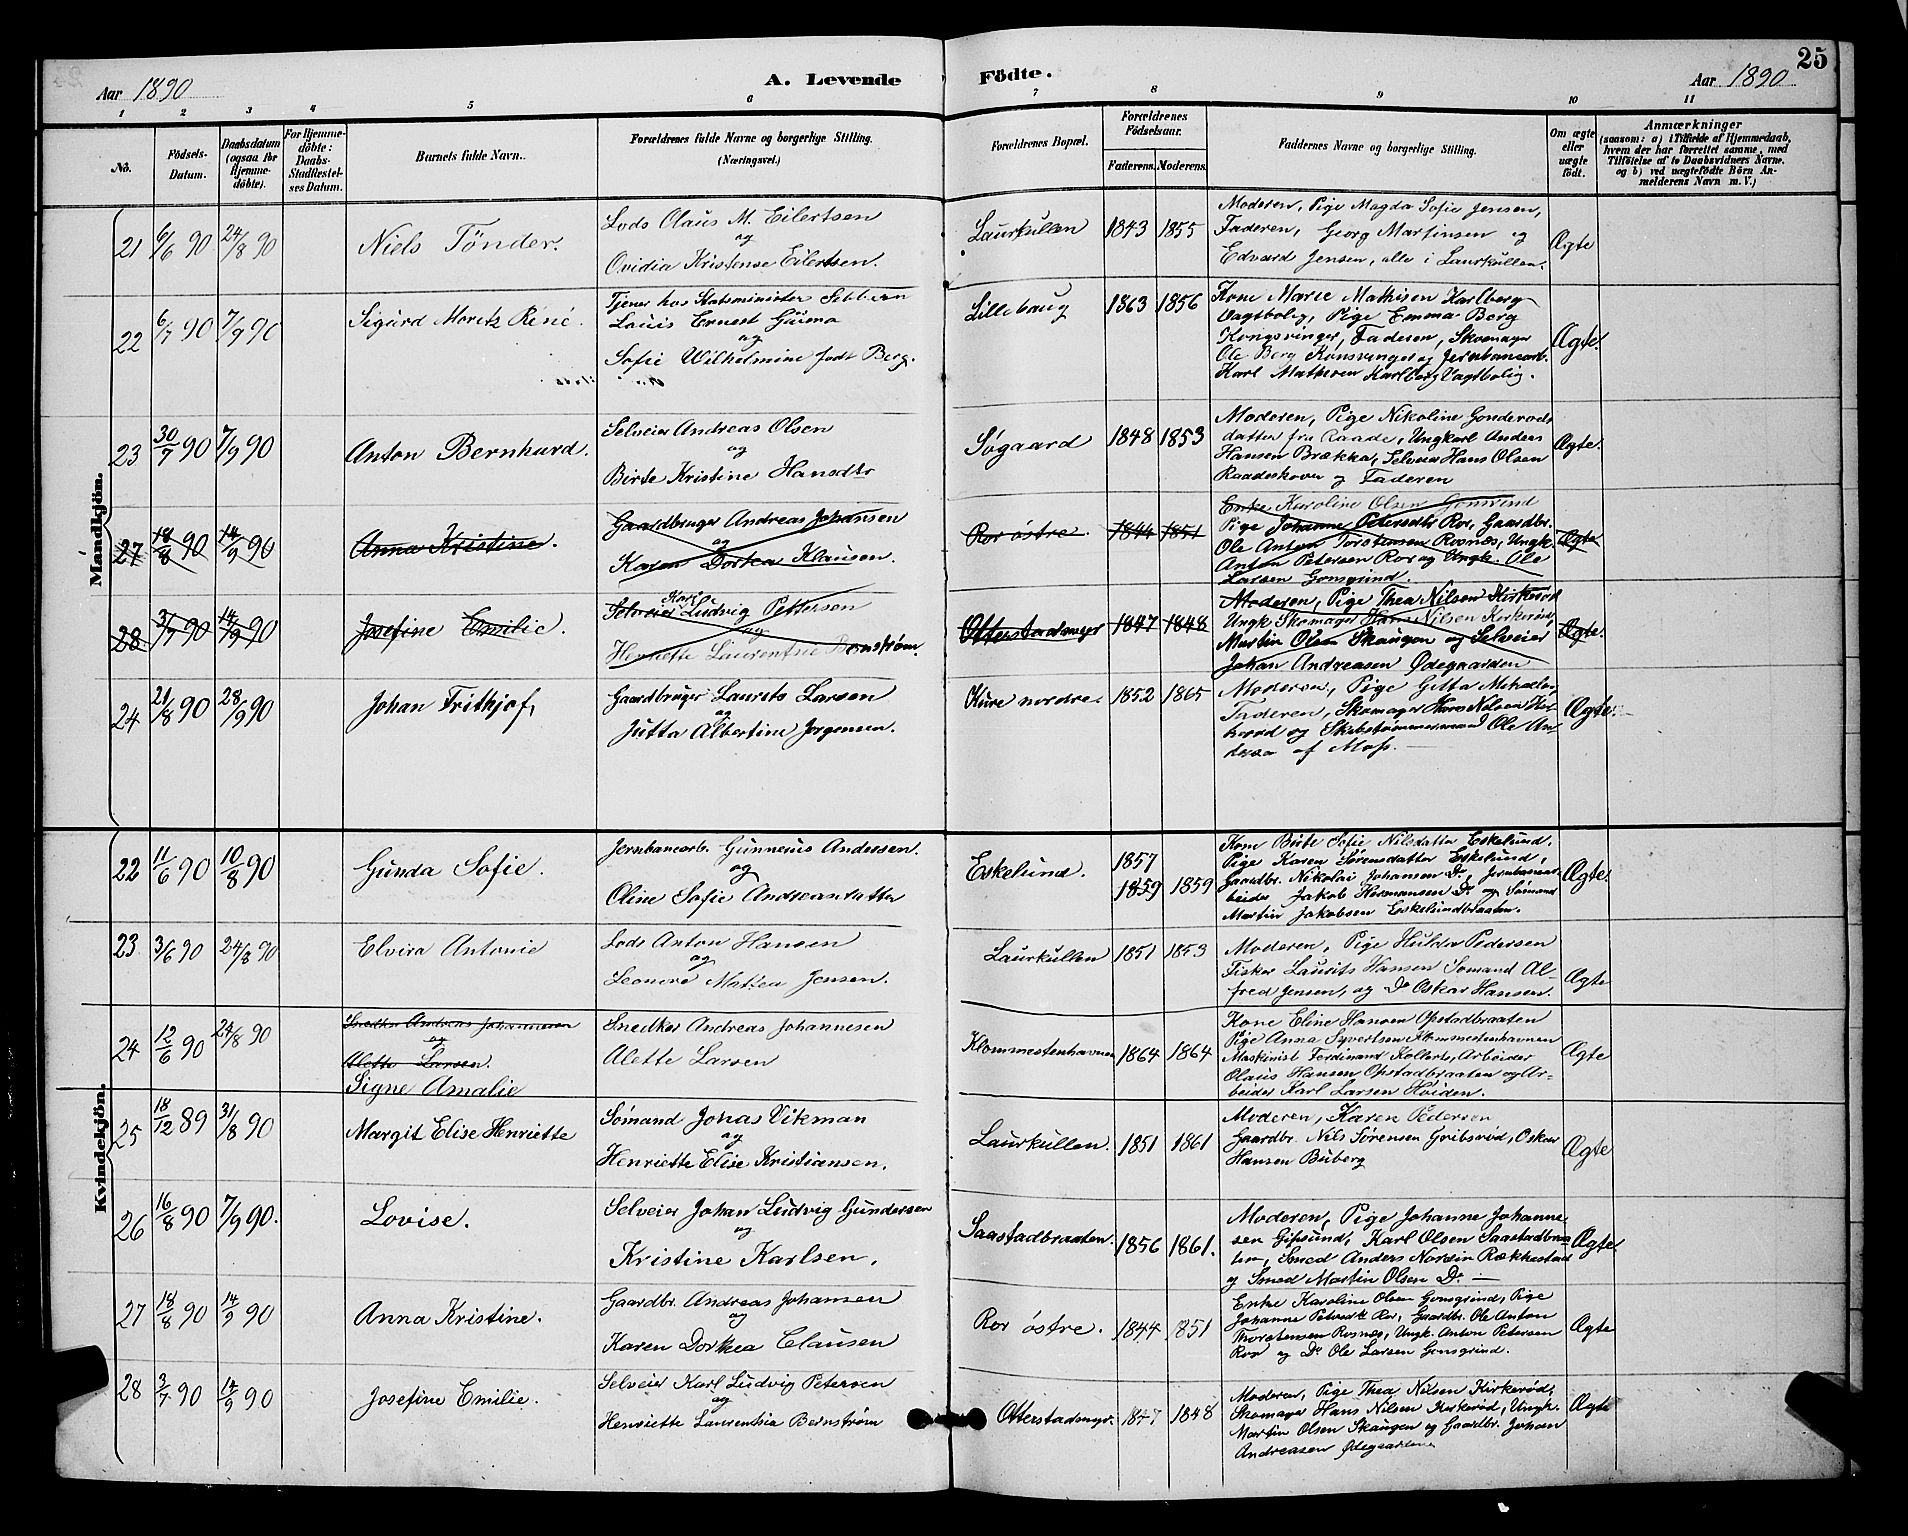 25
Aar 1890
A. Levende Födte.
Aar 1890
1 2 3 4 5 6 7 8 9 10 11
No.
Födsels-Datum.
Daabsdatum (ogsaa for Hjemme-döbte).
For Hjemme-döbte: Daabs-Stadfæstel-ses Datum.
Barnets fulde Navn.
Forældrenes fulde Navne og borgerlige Stilling. (Næringsvei.)
Forældrenes Bopæl.
Forældrenes Födselsaar.
Faderens. Moderens.
Faddernes Navne og borgerlige Stilling.
Om ægte eller uægte födt.
Anmærkninger
(saasom: a) i Tilfælde af Hjemmedaab, hvem der har forrettet samme, med Tilföielse af to Daabsvidners Navne. og b) ved uægtefödte Börn An-melderens Navn m. V.)
Mandkjön.
21 6/6 90 24/8 90 Niels Tönder.
Lods Olaus M. Eilertsen
og
Ovidia Kristense Eilertsen.
Laurkullen 1843 1855
Moderen, Pige Magda Sofie Jensen,
Faderen, Georg Martinsen og
Edvard Jensen, alle i Laurkullen.
Ægte
22 6/7 90 7/9 90 Sigurd Moritz René.
Tjener hos Statsminister Sibbern
Louis Ernest
og
Sofie Wilhelmine födt Berg.
Lillebaug 1863 1856
Kone Marie Mathisen Karlberg
Vagtbolig, Pige Emma Berg
Kongsvinger, Faderen, Skomager
Ole Berg Konsvinger og Jernbanearb.
Karl Mathesen Karlberg Vagtbolig.
Ægte.
23 30/7 90 7/9 90 Anton Bernhard.
Selveier Andreas Olsen
og
Birte Kristine Hansdtr
Søgaard 1848 1853
Moderen, Pige Nikoline Gonderods
datter fra Raade, Ungkarl Anders
Hansen Brækka, Selveier Hans Olsen
Raadeskoven og Faderen
Ægte.
27 18/8 90 14/9 90 Anna Kristine.
Gaardbruger Andreas Johansen
og
Karen Dorkea Klausen.
Ror østre. 1844 1851
Enke Karoline Olsen Gonsrind
Pige Johanne Petersdtr Ror, Gaardbr.
Ole Anton Torstensen Rosnes, Ungk.
Anton Petersen Ror og Ungk. Ole
Larsen Gonsgrind.
Ægte
28 3/7 90 14/9 90 Josefine Emilie.
Selveier Karl Ludvig Pettersen
og
Henriette Laurentsie Bernstrøm.
Otterstadsmyr 1847 1848
Moderen, Pige Thea Nilsen Kirkerød
Ungk Skomager Hans Nilsen Kirkerød,
Martin Olsen Skaugen og Selveier
Johan Andreasen Ødegaarden
Ægte.
24 21/8 90 28/9 90 Johan Frithjof,
Gaardbruger Laurits Larsen
og
Jutta Albertine Jørgensen.
Kure nordre 1852 1865
Moderen, Pige Gitta
Faderen, Skomager Hans Nilsen
og Skibstømmermand Ole An-
af Moss.
Ægte.
Kvindekjön.
22 11/6 90 10/8 90 Gunda Sofie.
Jernbanearb. Gunnerius Andersen.
og
Oline Sofie Andreasdatter
Eskelund. 1857 1859 1859
Kone Birte Sofie Nilsdatter Eskelund.
Pige Karen Sørensdatter Eskelund,
Gaardbr. Nikolai Johansen Do, Jernbanear-
beider Jakob Hermansen Do og Sømand
Martin Jakobsen Eskelundbraaten.
Ægte.
23. 3/6 90 24/8 90 Elvira Antonie
Lods Anton Hansen
og
Leonore Mattea Jensen.
Laurkullen 1851 1853
Moderen, Pige Hulda Pedersen
Fisker Laurits Hansen Sømand Al-
fred Jensen, og Do Oskar Hansen.
Ægte
24 12/6 90 24/8 90
Snedker Andreas Johannesen
og
Alette Larsen.
Signe Amalie
Snedker Andreas Johannesen
Alette Larsen
Klommestenhavnen 1864 1864
Kone Eline Hansen Opstadbraaten
Pige Anna Syvertsen Klommestenhavnen
Maskinist Ferdinand Kollerts, Arbeider
Olaus Hansen Opstadbraaten og Ar-
beider Karl Larsen Høiden.
Ægte
25 18/12 89 31/8 90 Margit Elise Henriette
Sømand Johas Vikman
og
Henriette Elise Kristiansen.
Laurkullen. 1851 1861
Moderen, Karen Pedersen
Gaardbr. Nils Sørensen Gribsrød, Oskar
Hansen Buberg
Ægte
26 16/8 90 7/9 90. Lovise.
Selveier Johan Ludvig Gundersen
og
Kristine Karlsen.
Saastadbraaten. 1856 1861.
Moderen, Pige Johanne Johanne-
sen Gipsund, Karl Olsen Saastadbraa-
ten, Smed Anders Nordin Rækkestad
og Smed Martin Olsen Do. —
Ægte.
27 18/8 90 14/9 90 Anna Kristine.
Gaardbr. Andreas Johansen
og
Karen Dorkea Clausen
Ror østre. 1844 1851
Enke Karoline Olsen Gonsgrind, Pige
Johanne Ror, Gaardbr. Ole Anton
Thorstensen Rosnes, Ungk. Anton Petersen
Ror og Do Ole Larsen Gonsgrind.
Ægte
28 3/7 90 14/9 90 Josefine Emilie.
Selveier Karl Ludvig Petersen
og
Henriette Laurentsia Bernstrøm
Otterstadsmyr. 1847 1848
Moderen, Pige Thea Nilsen Kirkerød,
Skomager Hans Nilsen Kirkerød, Ungk.
Martin Olsen Skaugen og Gaardbr. Johan
Andreasen Ødegaarden
Ægte